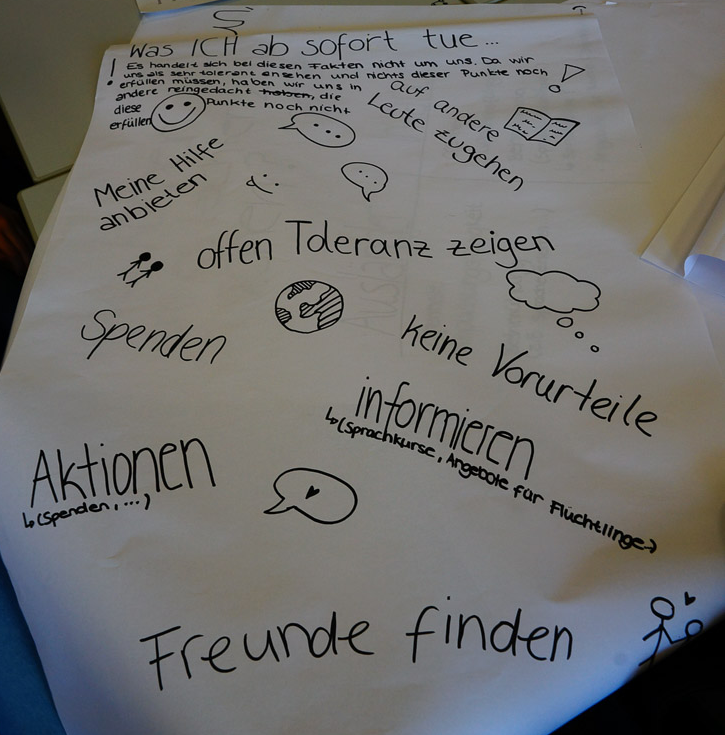 Was ICH ab sofort tue...
! Es handelt sich bei diesen Fakten nicht um uns. Da wir
uns als sehr tolerant ansehen und nichts dieser Punkte noch
erfüllen müssen, haben wir uns in
andere reingedacht haben, die
diese Punkte noch nicht
erfüllen
!
auf andere
Leute zugehen
Meine Hilfe
anbieten
offen Toleranz zeigen
Spenden
keine Vorurteile
informieren
↳ (Sprachkurse, Angebote für Flüchtlinge)
Aktionen
↳ (Spenden, ...)
Freunde finden